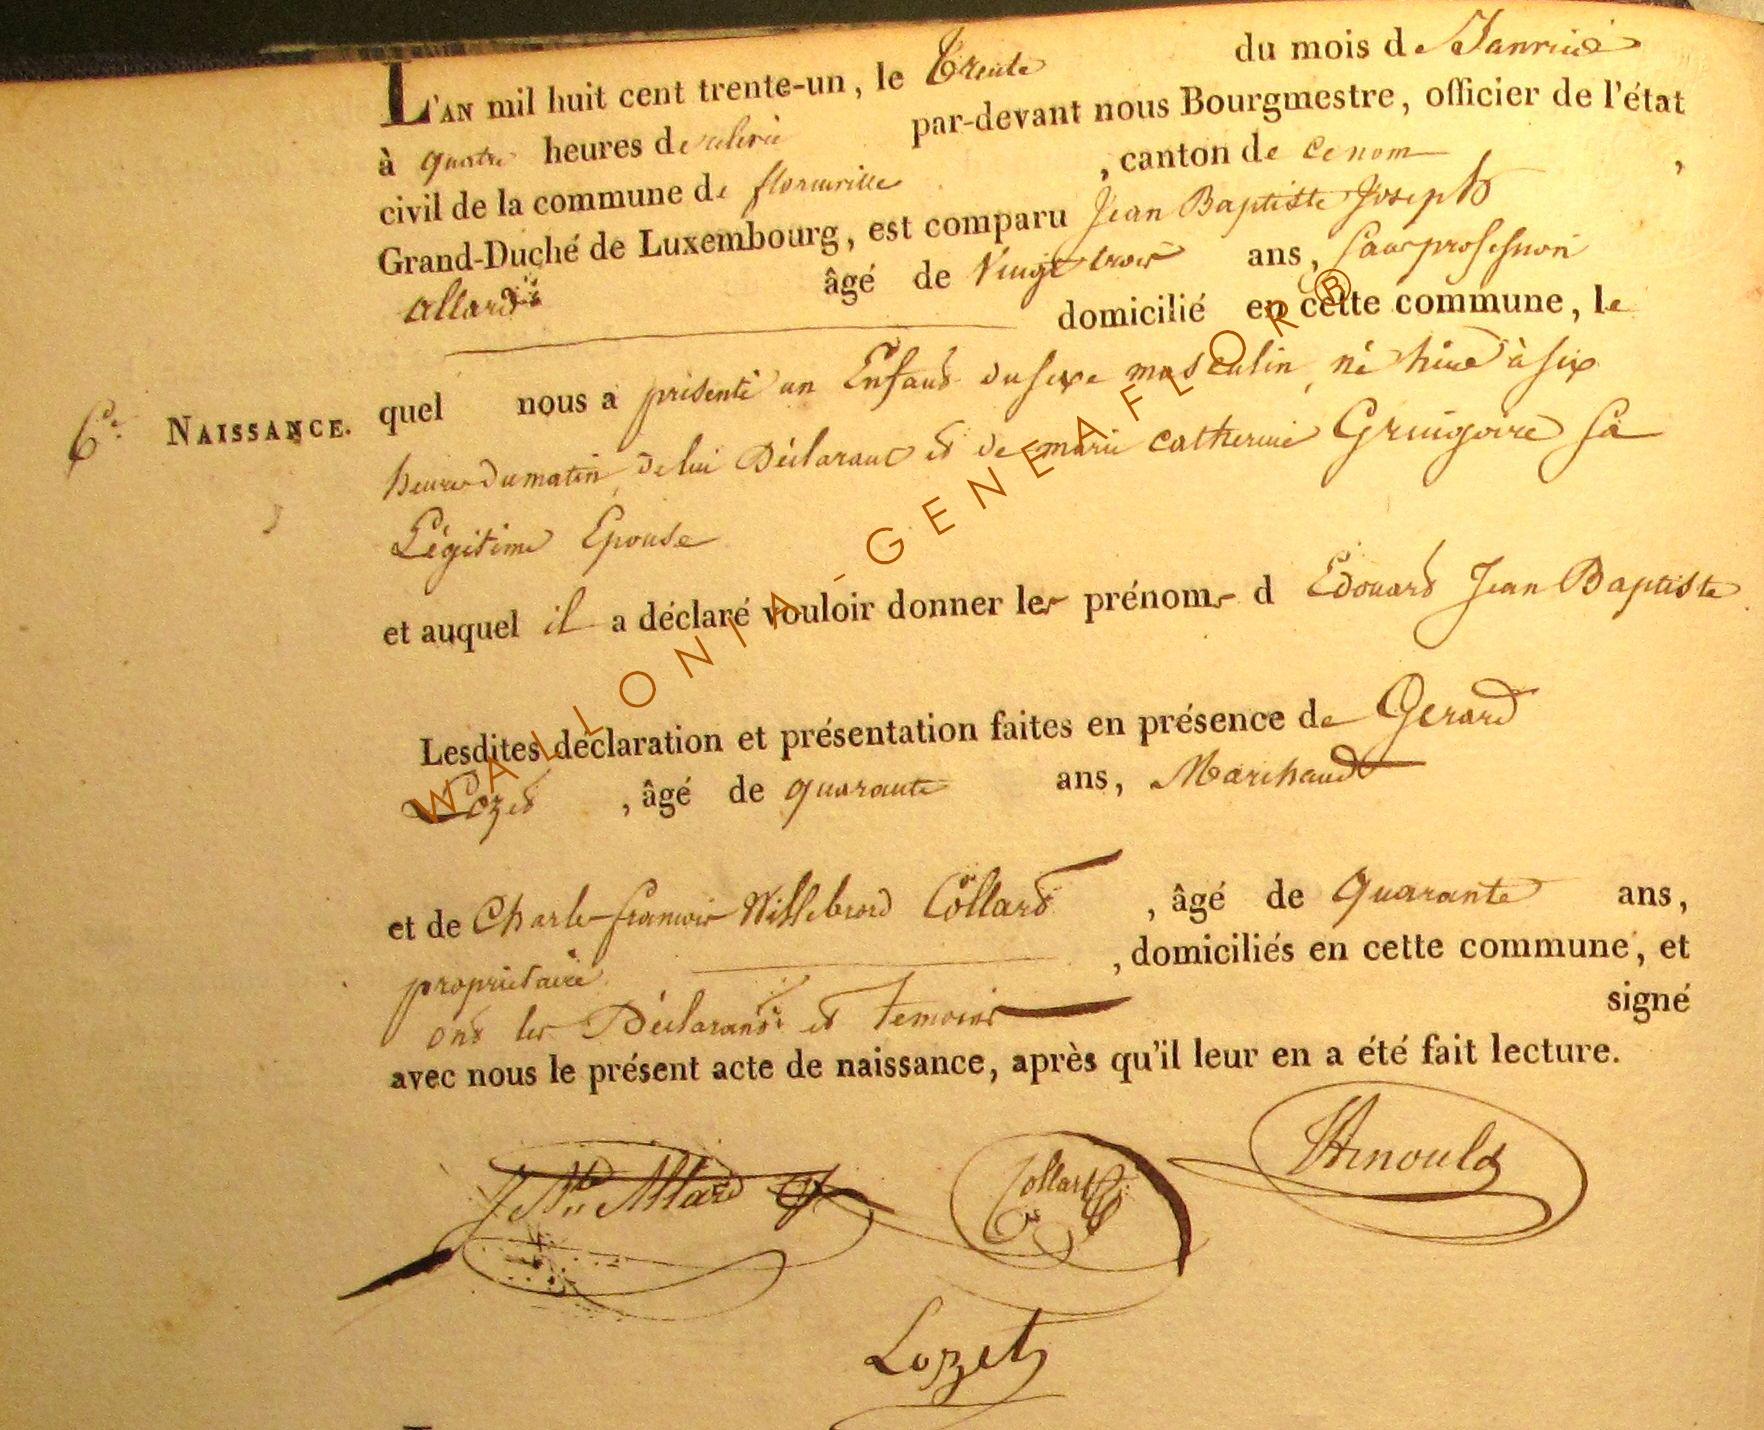 L'AN mil huit cent trente-un, le trente du mois de Janvier
à quatre heures de relevée par-devant nous Bourgmestre, officier de l'état
civil de la commune de florenville, canton de ce nom,
Grand-Duché de Luxembourg, est comparu Jean Baptiste Joseph
allard âgé de Vingt trois ans, sans profession
domicilié en cette commune, le
6e. NAISSANCE. quel nous a présenté un Enfant du sexe masculin, né hier à six
heures du matin, de lui Déclarant et de marie catherine Gringoire sa
Légitime Epouse
et auquel il a déclaré vouloir donner les prénoms d Edouard Jean Baptiste
Lesdites déclaration et présentation faites en présence de Gerard
Lozet, âgé de quarante ans, Marchand
et de Charles francois Willebrord Collard, âgé de Quarante ans,
propriétaire, domiciliés en cette commune, et
ont les Déclarant et Temoins signé
avec nous le présent acte de naissance, après qu'il leur en a été fait lecture.
Allard Collard Arnould
Lozet
WALLONIA - GENEAFLOR ®